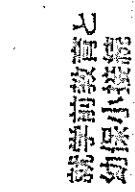 就学前教育と
幼保小接続